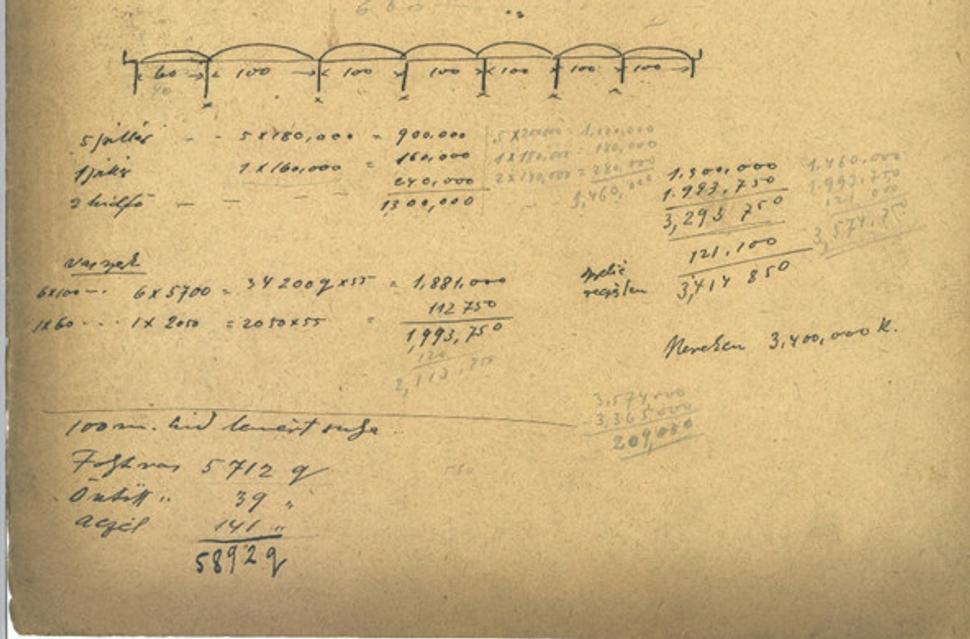 60 100 100 100 100 100 100
40
5 pillér - - 5 x 180,000 = 900.000
1 pillér 1 x 160,000 = 160,000
240,000
2 hidfő - - - - 1300,000
5 x 200000 = 1,000,000
1 x 180,000 = 180,000
2 x 140,000 = 280,000
1,460,000
1.300,000
1.993,750
3,293 750
121,100
3,414 850
1.460.000
1.993.750
121 000
3,574,750
Vasszerk
6x100 - . 6 x 5700 = 34200 q x 55 = 1,881,000
1x60 . . . 1 x 2050 = 2050 x 55 = 112 750
1,993,750
120
2,113,750
részlen
Kereken 3,400,000 K.
3,574000
-3,365000
209,000
100 m. hid lemért sulya
Folytvas 5712 q
Öntött „ 39 „
Aczél 141 „
5892 q